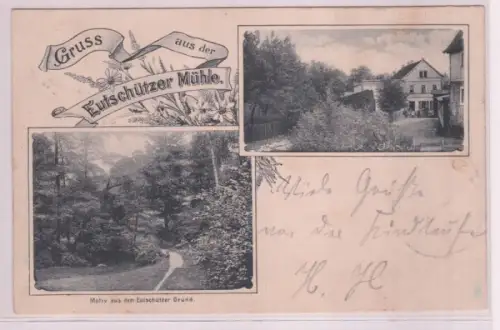 Gruss
aus der
Eutschützer Mühle.
Motiv aus dem Eutschützer Grund.
Viele Grüße
von der
H. H.